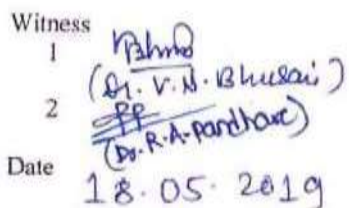 Witness
1
(Dr. V. N. Bhusari)
2
(Dr. R. A. Pandhare)
Date 18.05.2019